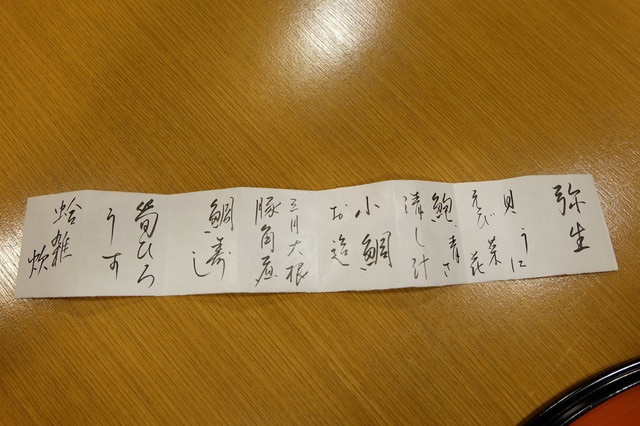 弥生
貝うに
えび菜花
鮑、青さ
清し汁
小鯛
お造
三月大根
豚角煮
鯛寿し
筍ひろ
うす
蛤雑
炊